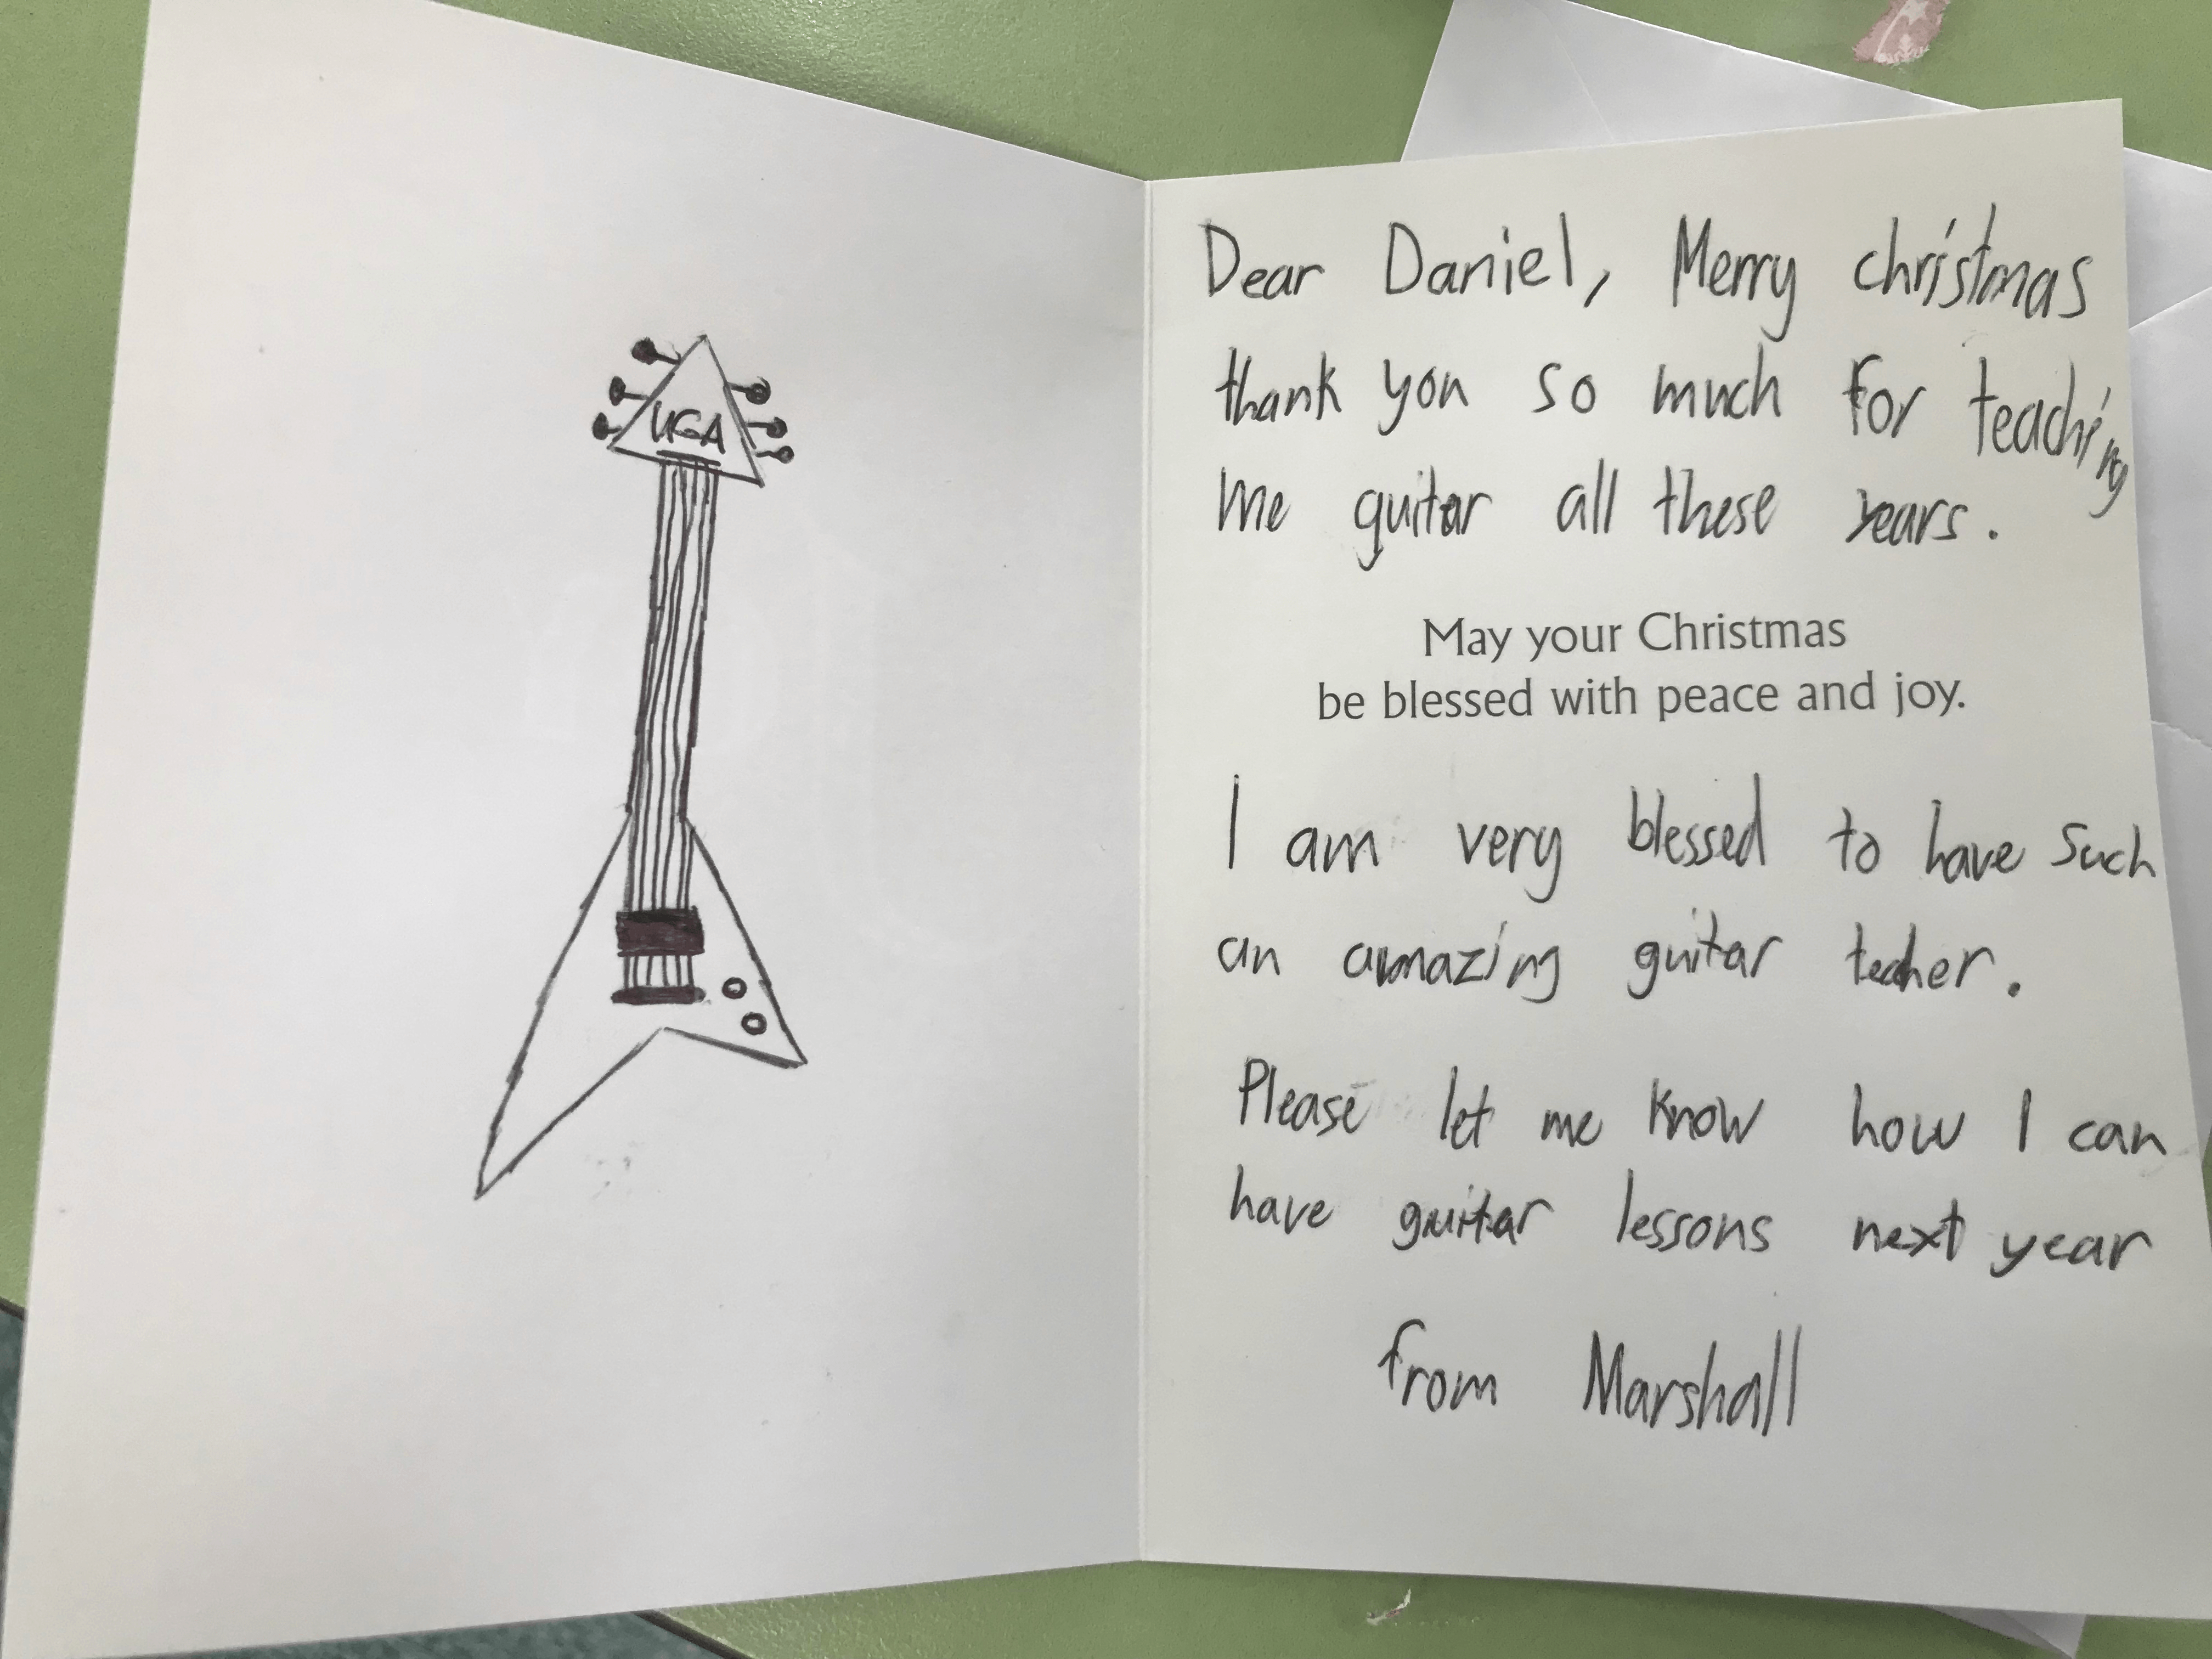 UGA
Dear Daniel, Merry christmas
thank you so much for teaching
me guitar all these years.
May your Christmas
be blessed with peace and joy.
I am very blessed to have such
an amazing guitar teacher.
Please let me know how I can
have guitar lessons next year
from Marshall